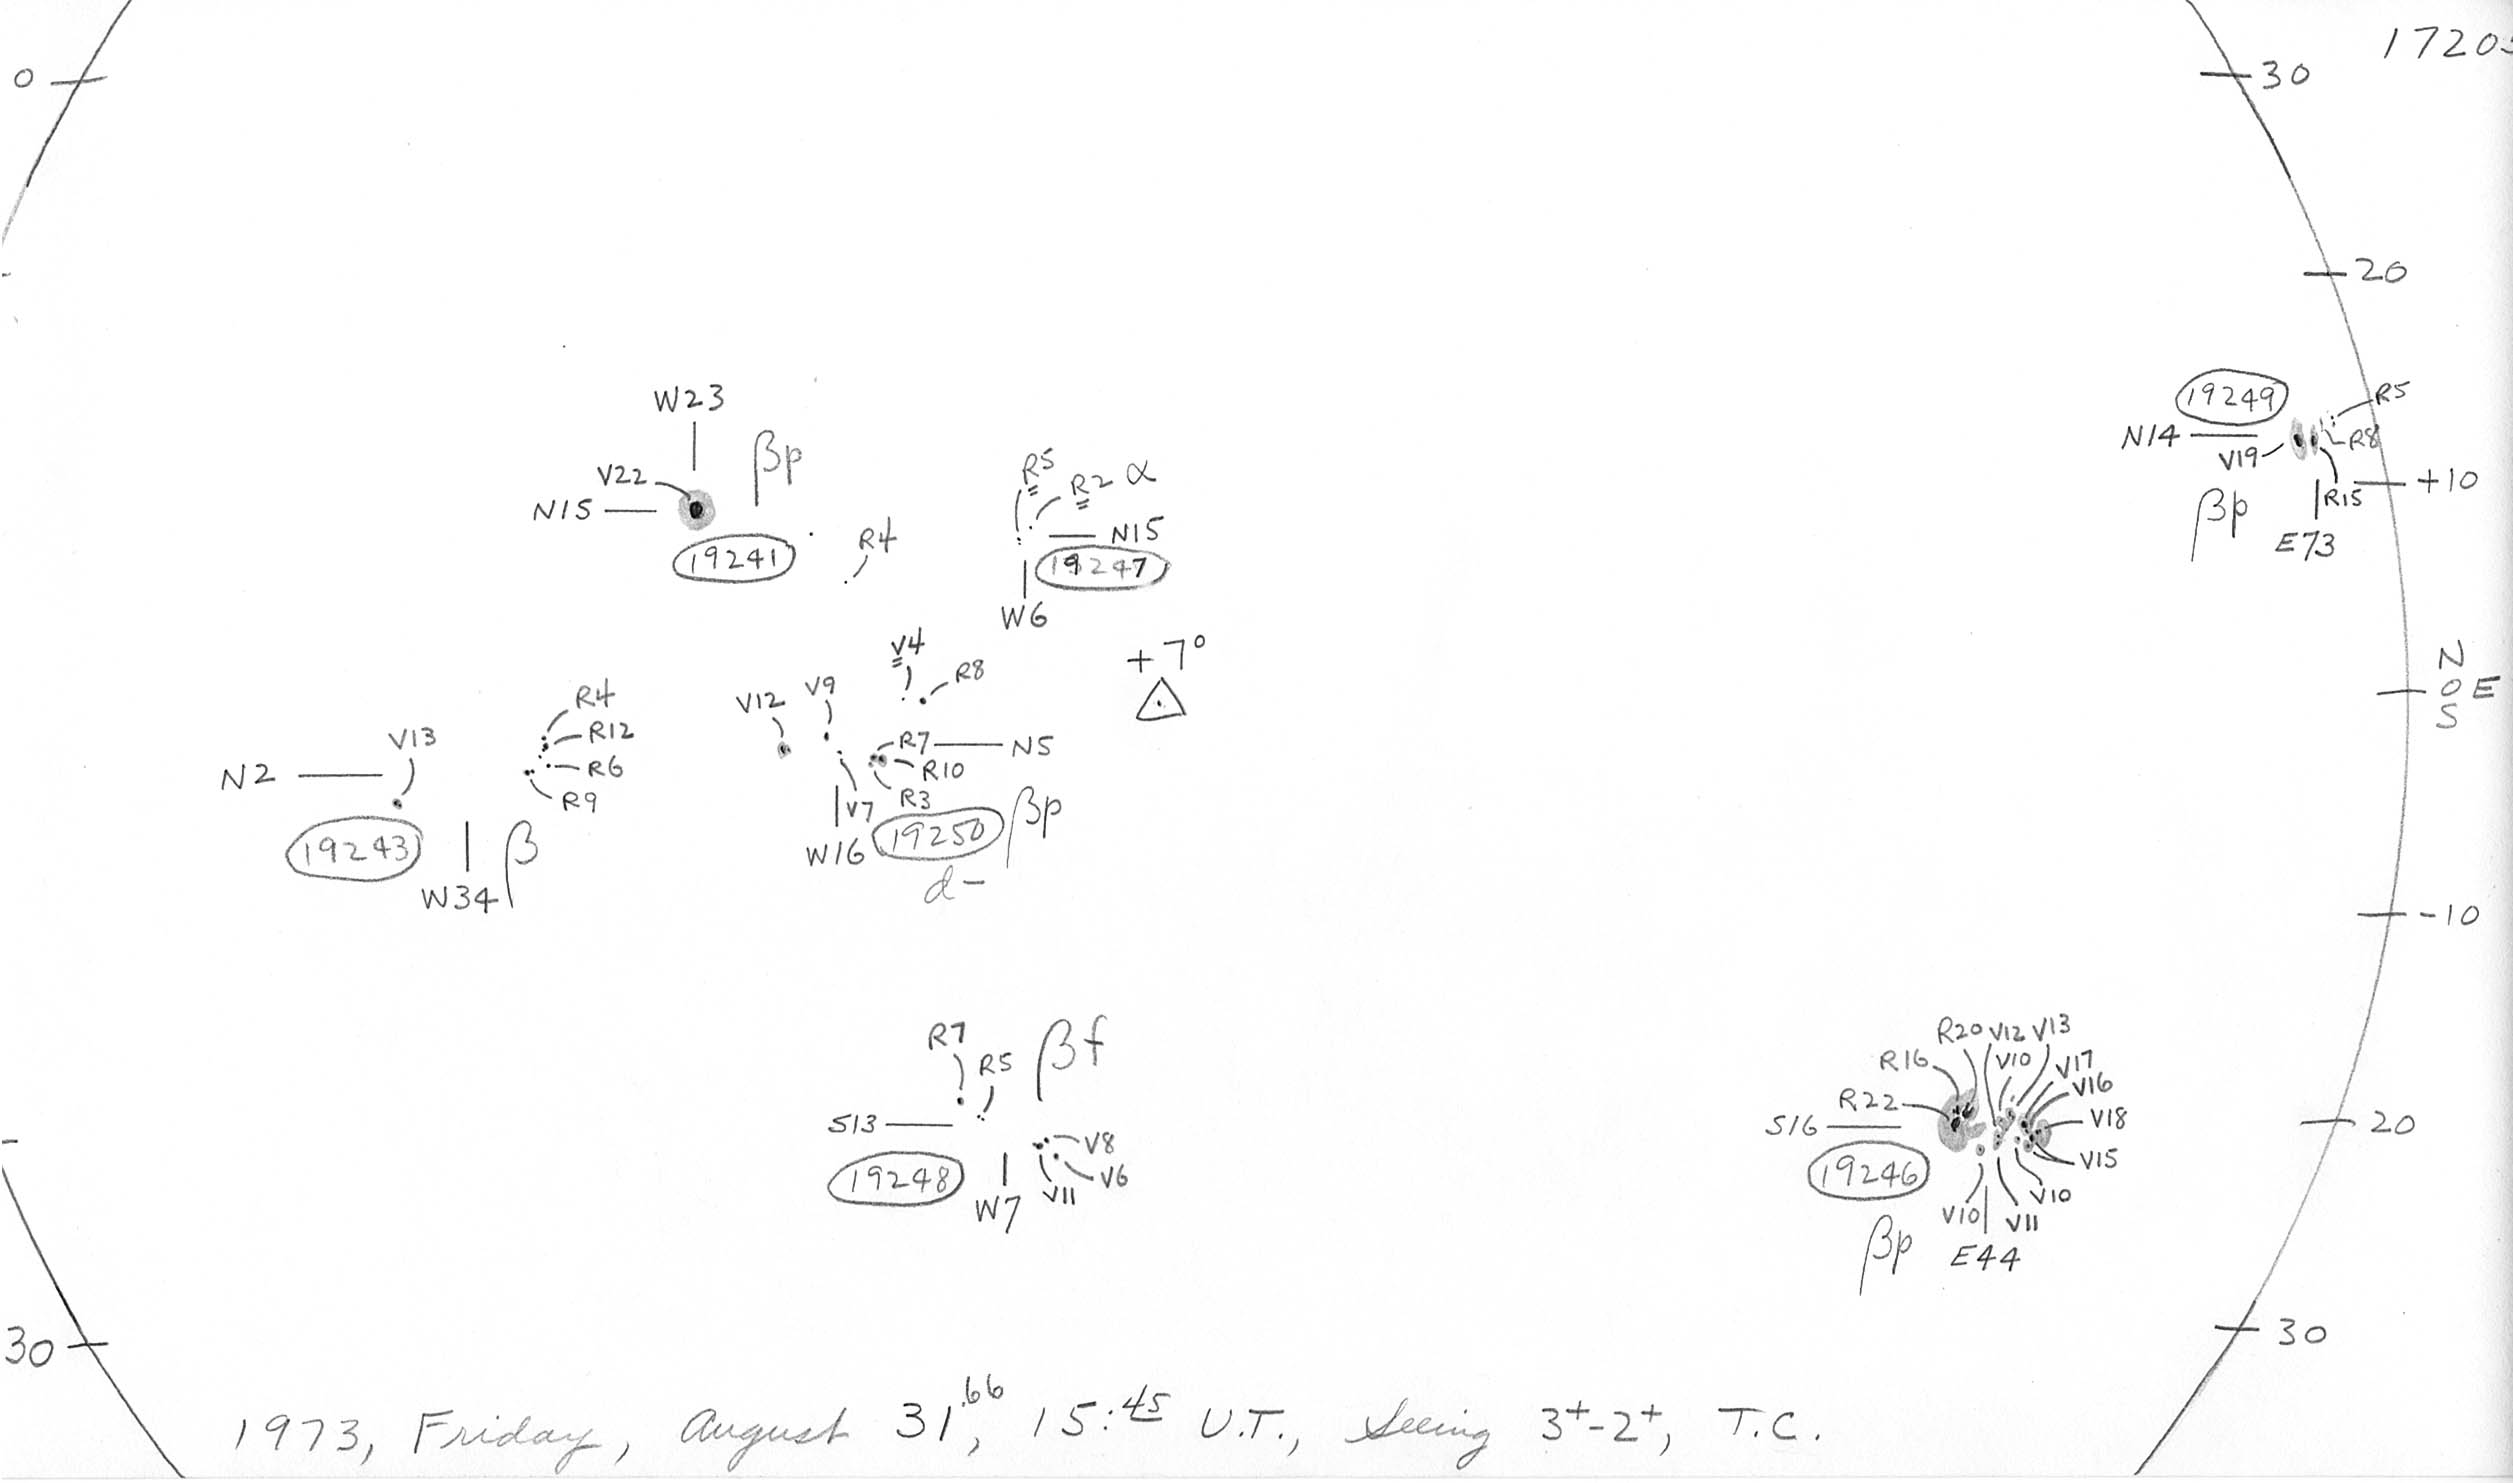 0
30
1720
20
W23
βp
V22
N15
19241
R4
R5
R2 α
N15
19247
W6
19249
R5
N14
V19
R8
R15
+10
βp
E73
+7°
N
0 E
S
V4
R8
V12
V9
R7
N5
R10
R3
V7
W16
19250
βp
d-
R4
R12
R6
R9
V13
N2
19243
W34
β
-10
R7
R5
βf
S13
V8
V6
V11
19248
W7
R20 V12 V13
R16
V10
V17
V16
R22
V18
S16
V15
19246
V10
V10
V11
βp
E44
20
30
30
1973, Friday, August 31.66, 15:45 U.T., Seeing 3+-2+, T.C.